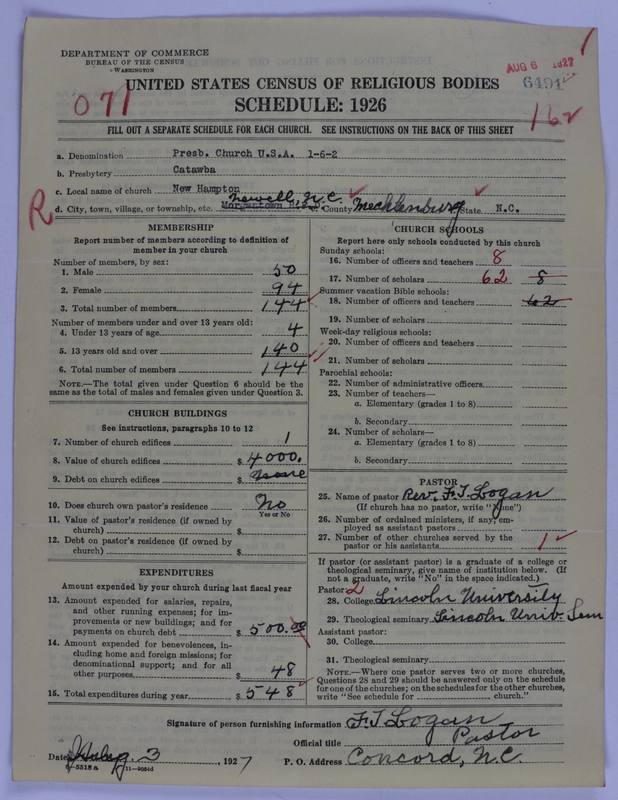 DEPARTMENT OF COMMERCE
BUREAU OF THE CENSUS
WASHINGTON
AUG 6 1927
6491
071
162
UNITED STATES CENSUS OF RELIGIOUS BODIES
SCHEDULE: 1926
FILL OUT A SEPARATE SCHEDULE FOR EACH CHURCH. SEE INSTRUCTIONS ON THE BACK OF THIS SHEET
a. Denomination Presb. Church U.S.A. 1-6-2
b. Presbytery Catawba
c. Local name of church New Hampton
R
d. City, town, village, or township, etc. Newell N.C. County Mecklenburg State N.C.
MEMBERSHIP
Report number of members according to definition of member in your church
Number of members, by sex:
1. Male 50
2. Female 94
3. Total number of members 144
Number of members under and over 13 years old:
4. Under 13 years of age 4
5. 13 years old and over 140
6. Total number of members 144
NOTE.—The total given under Question 6 should be the same as the total of males and females given under Question 3.
CHURCH BUILDINGS
See instructions, paragraphs 10 to 12
7. Number of church edifices 1
8. Value of church edifices $ 4000.
9. Debt on church edifices $ none
10. Does church own pastor's residence No
Yes or No
11. Value of pastor's residence (if owned by church) $
12. Debt on pastor's residence (if owned by church) $
EXPENDITURES
Amount expended by your church during last fiscal year
13. Amount expended for salaries, repairs, and other running expenses; for improvements or new buildings; and for payments on church debt $ 500.00
14. Amount expended for benevolences, including home and foreign missions; for denominational support; and for all other purposes $ 48
15. Total expenditures during year $ 548
CHURCH SCHOOLS
Report here only schools conducted by this church
Sunday schools:
16. Number of officers and teachers 8
17. Number of scholars 62 8
Summer vacation Bible schools:
18. Number of officers and teachers 62
19. Number of scholars
Week-day religious schools:
20. Number of officers and teachers
21. Number of scholars
Parochial schools:
22. Number of administrative officers
23. Number of teachers—
a. Elementary (grades 1 to 8)
b. Secondary
24. Number of scholars—
a. Elementary (grades 1 to 8)
b. Secondary
PASTOR
25. Name of pastor Rev. F. T. Logan
(If church has no pastor, write "None")
26. Number of ordained ministers, if any, employed as assistant pastors
27. Number of other churches served by the pastor or his assistants 1
If pastor (or assistant pastor) is a graduate of a college or theological seminary, give name of institution below. (If not a graduate, write "No" in the space indicated.)
Pastor: 2
28. College Lincoln University
29. Theological seminary Lincoln Univ. Sem
Assistant pastor:
30. College
31. Theological seminary
NOTE.—Where one pastor serves two or more churches, Questions 28 and 29 should be answered only on the schedule for one of the churches; on the schedules for the other churches, write "See schedule for church."
Signature of person furnishing information F. T. Logan
Official title Pastor
Date Aug. 3, 1927 P. O. Address Concord, N.C.
8—5518a 11—9054d